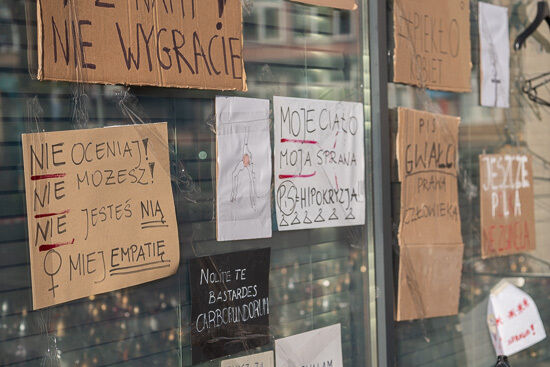 Z NAMI!
NIE WYGRACIE
PIEKŁO
KOBIET
NIE OCENIAJ!
NIE MOŻESZ!
NIE JESTEŚ NIĄ
MIEJ EMPATIĘ
MOJE CIAŁO
MOJA SPRAWA
PIS HIPOKRYZJA
NOLITE TE
BASTARDES
CARBORUNDORUM
PIS
GWAŁCI
PRAWA
CZŁOWIEKA
JESZCZE
PŁA
NIE ZGINĘŁA